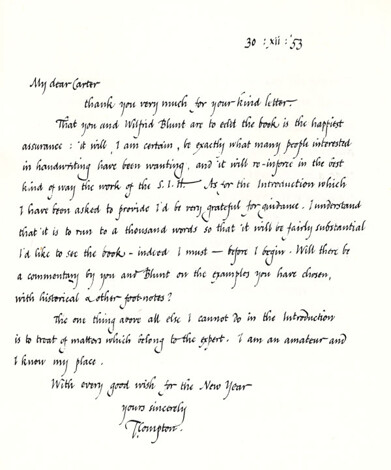 30 : xii : '53
My dear Carter
thank you very much for your kind letter.
That you and Wilfrid Blunt are to edit the book is the happiest
assurance : it will, I am certain, be exactly what many people interested
in handwriting have been wanting, and it will re-inforce in the best
kind of way the work of the S.I.H. As for the Introduction which
I have been asked to provide I'd be very grateful for guidance. I understand
that it is to run to a thousand words so that it will be fairly substantial
I'd like to see the book - indeed I must - before I begin. Will there be
a commentary by you and Blunt on the examples you have chosen,
with historical & other footnotes?
The one thing above all else I cannot do in the Introduction
is to treat of matters which belong to the expert. I am an amateur and
I know my place.
With every good wish for the New Year
yours sincerely
Compton.